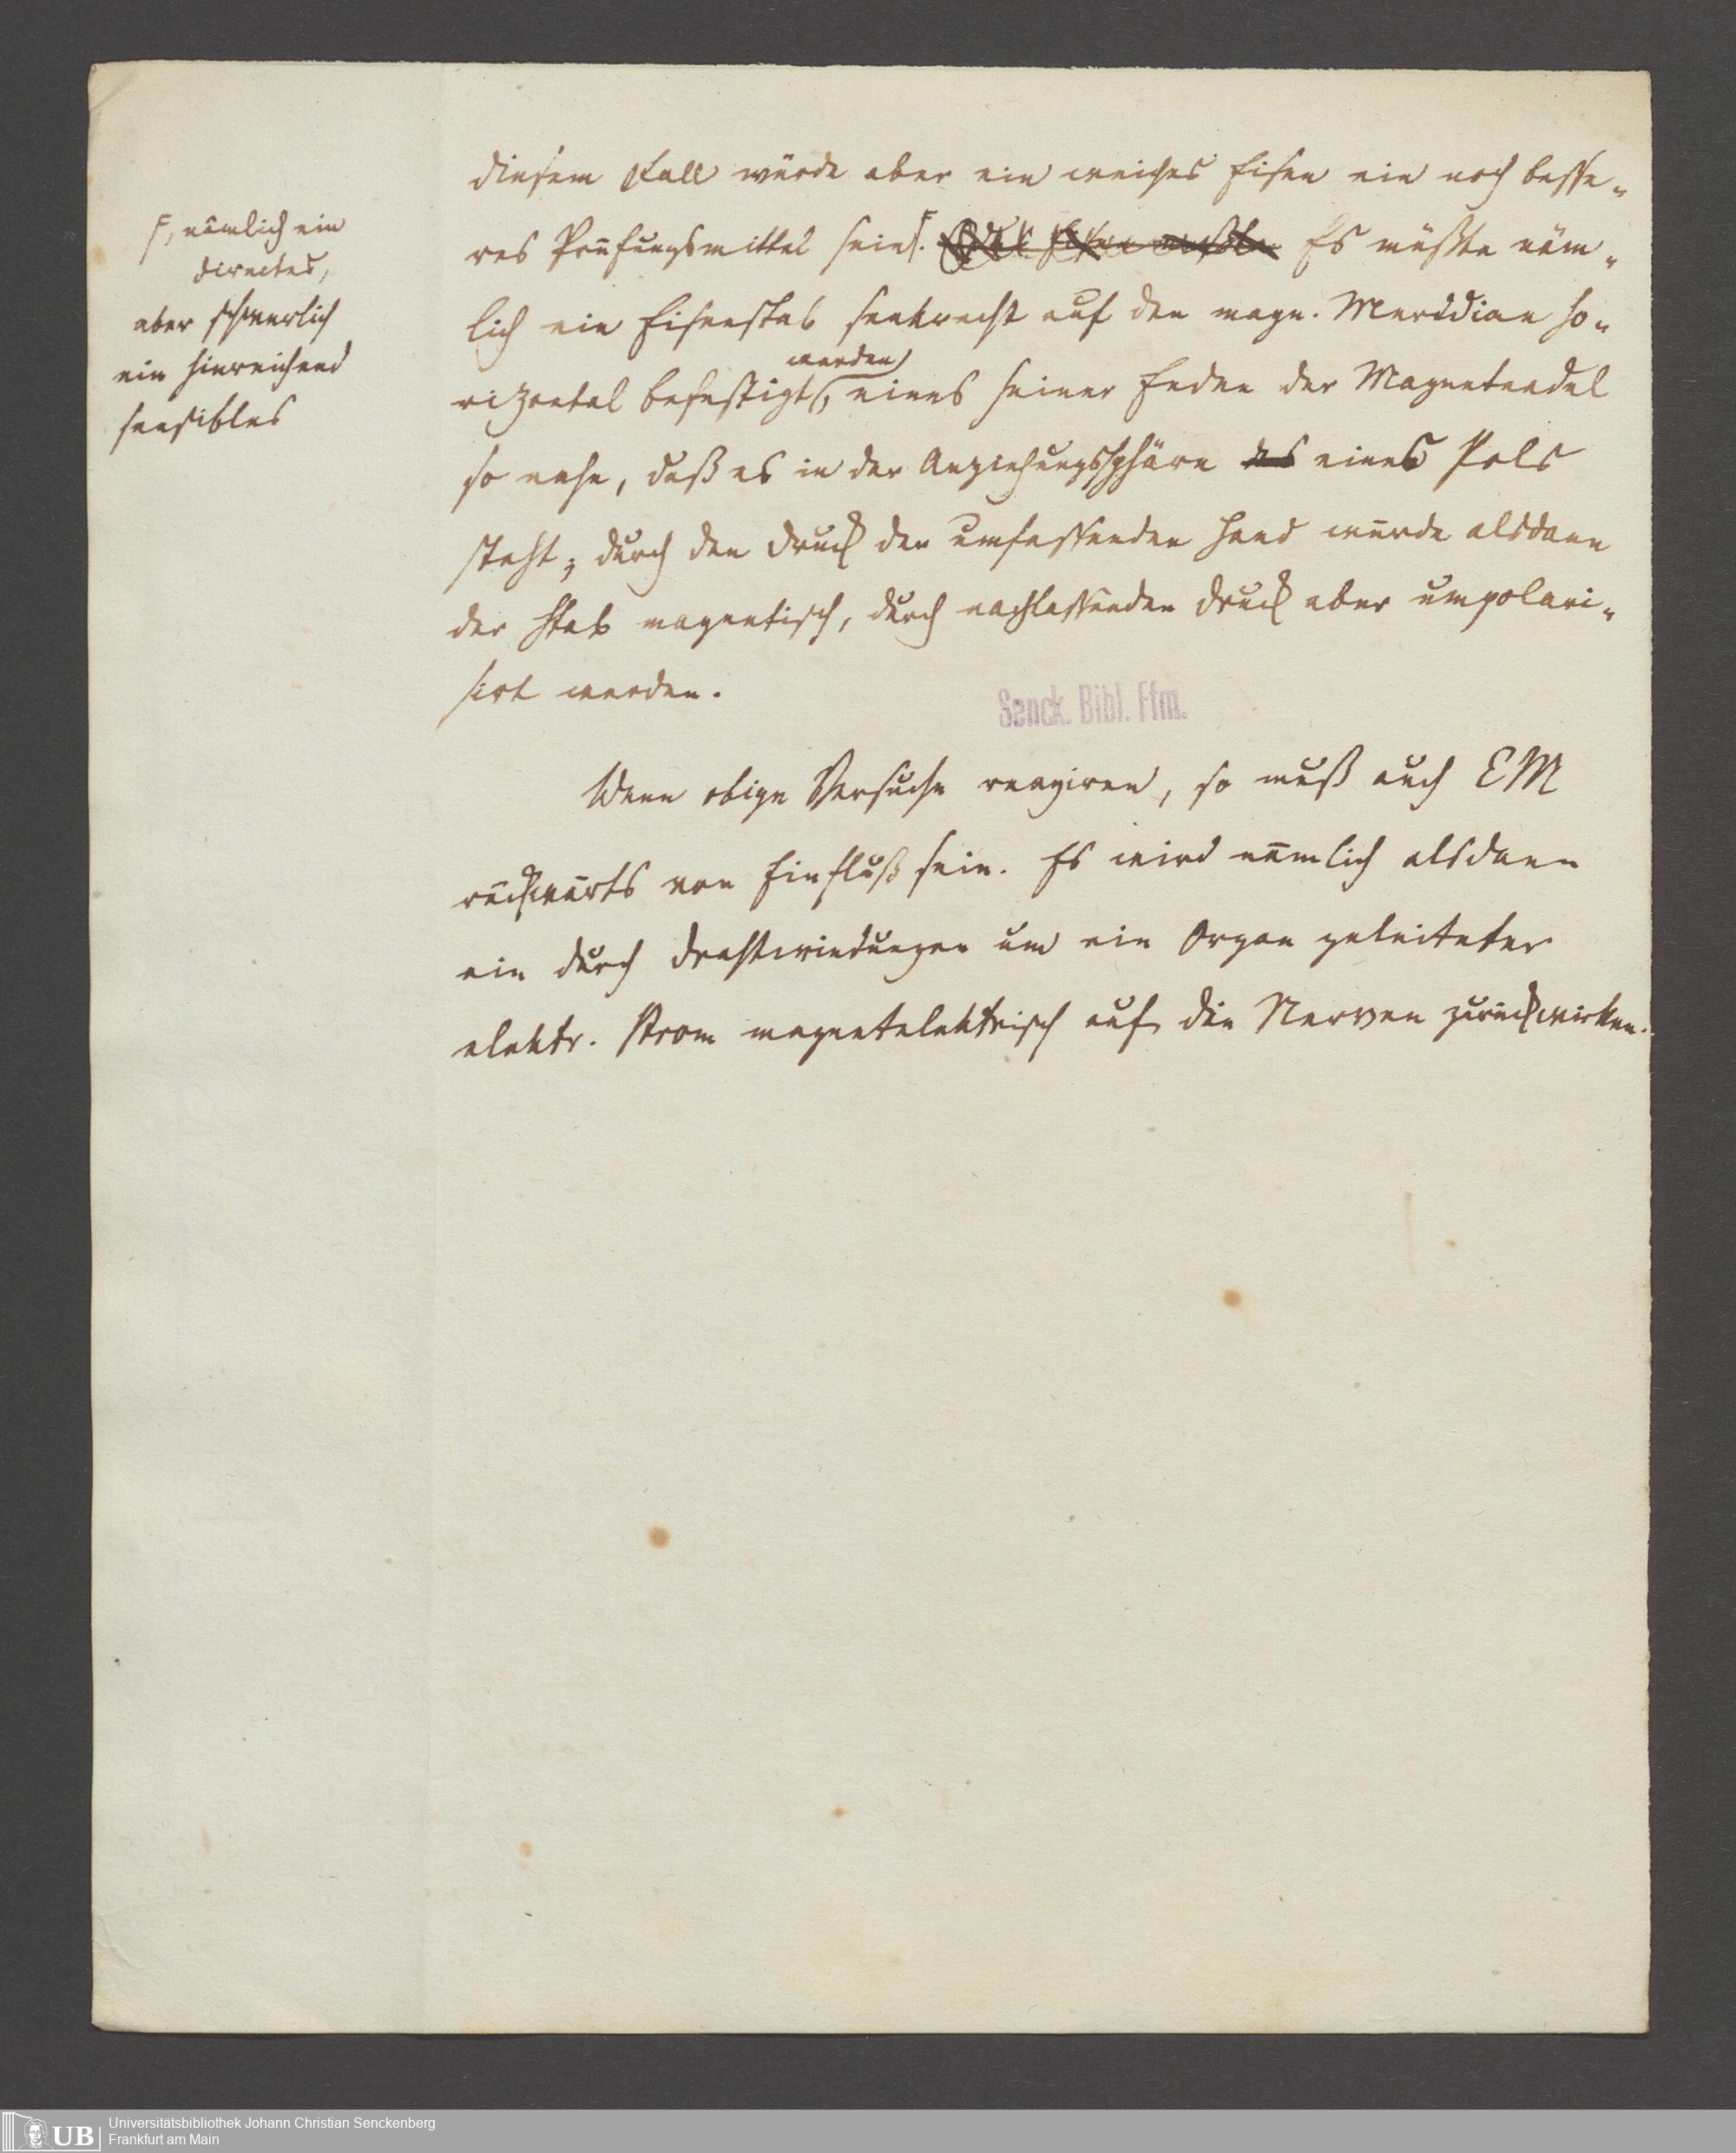 diesem Fall würde aber ein weiches Eisen ein noch besse-
res Prüfungsmittel sein. Das Eisen müßte Es müßte näm-
lich ein Eisenstab senkrecht auf den magn. Meridian ho-
rizontal befestigt werden, eines seiner Enden der Magnetnadel
so nahe, daß es in der Anziehungssphäre des eines Pols
steht; durch den Druck der umfassenden Hand würde alsdann
der Stab magnetisch, durch nachlassenden Druck aber umpolari-
sirt werden.
Wenn obige Versuche reagiren, so muß auch EM
rückwärts von Einfluß sein. Es wird nämlich alsdann
ein durch Drahtwindungen um ein Organ geleiteter
elektr. Strom magnetelektrisch auf die Nerven zurückwirken.
F, nämlich ein
directes,
aber schwerlich
ein hinreichend
sensibles
Senck. Bibl. Ffm.
UB
Universitätsbibliothek Johann Christian Senckenberg
Frankfurt am Main